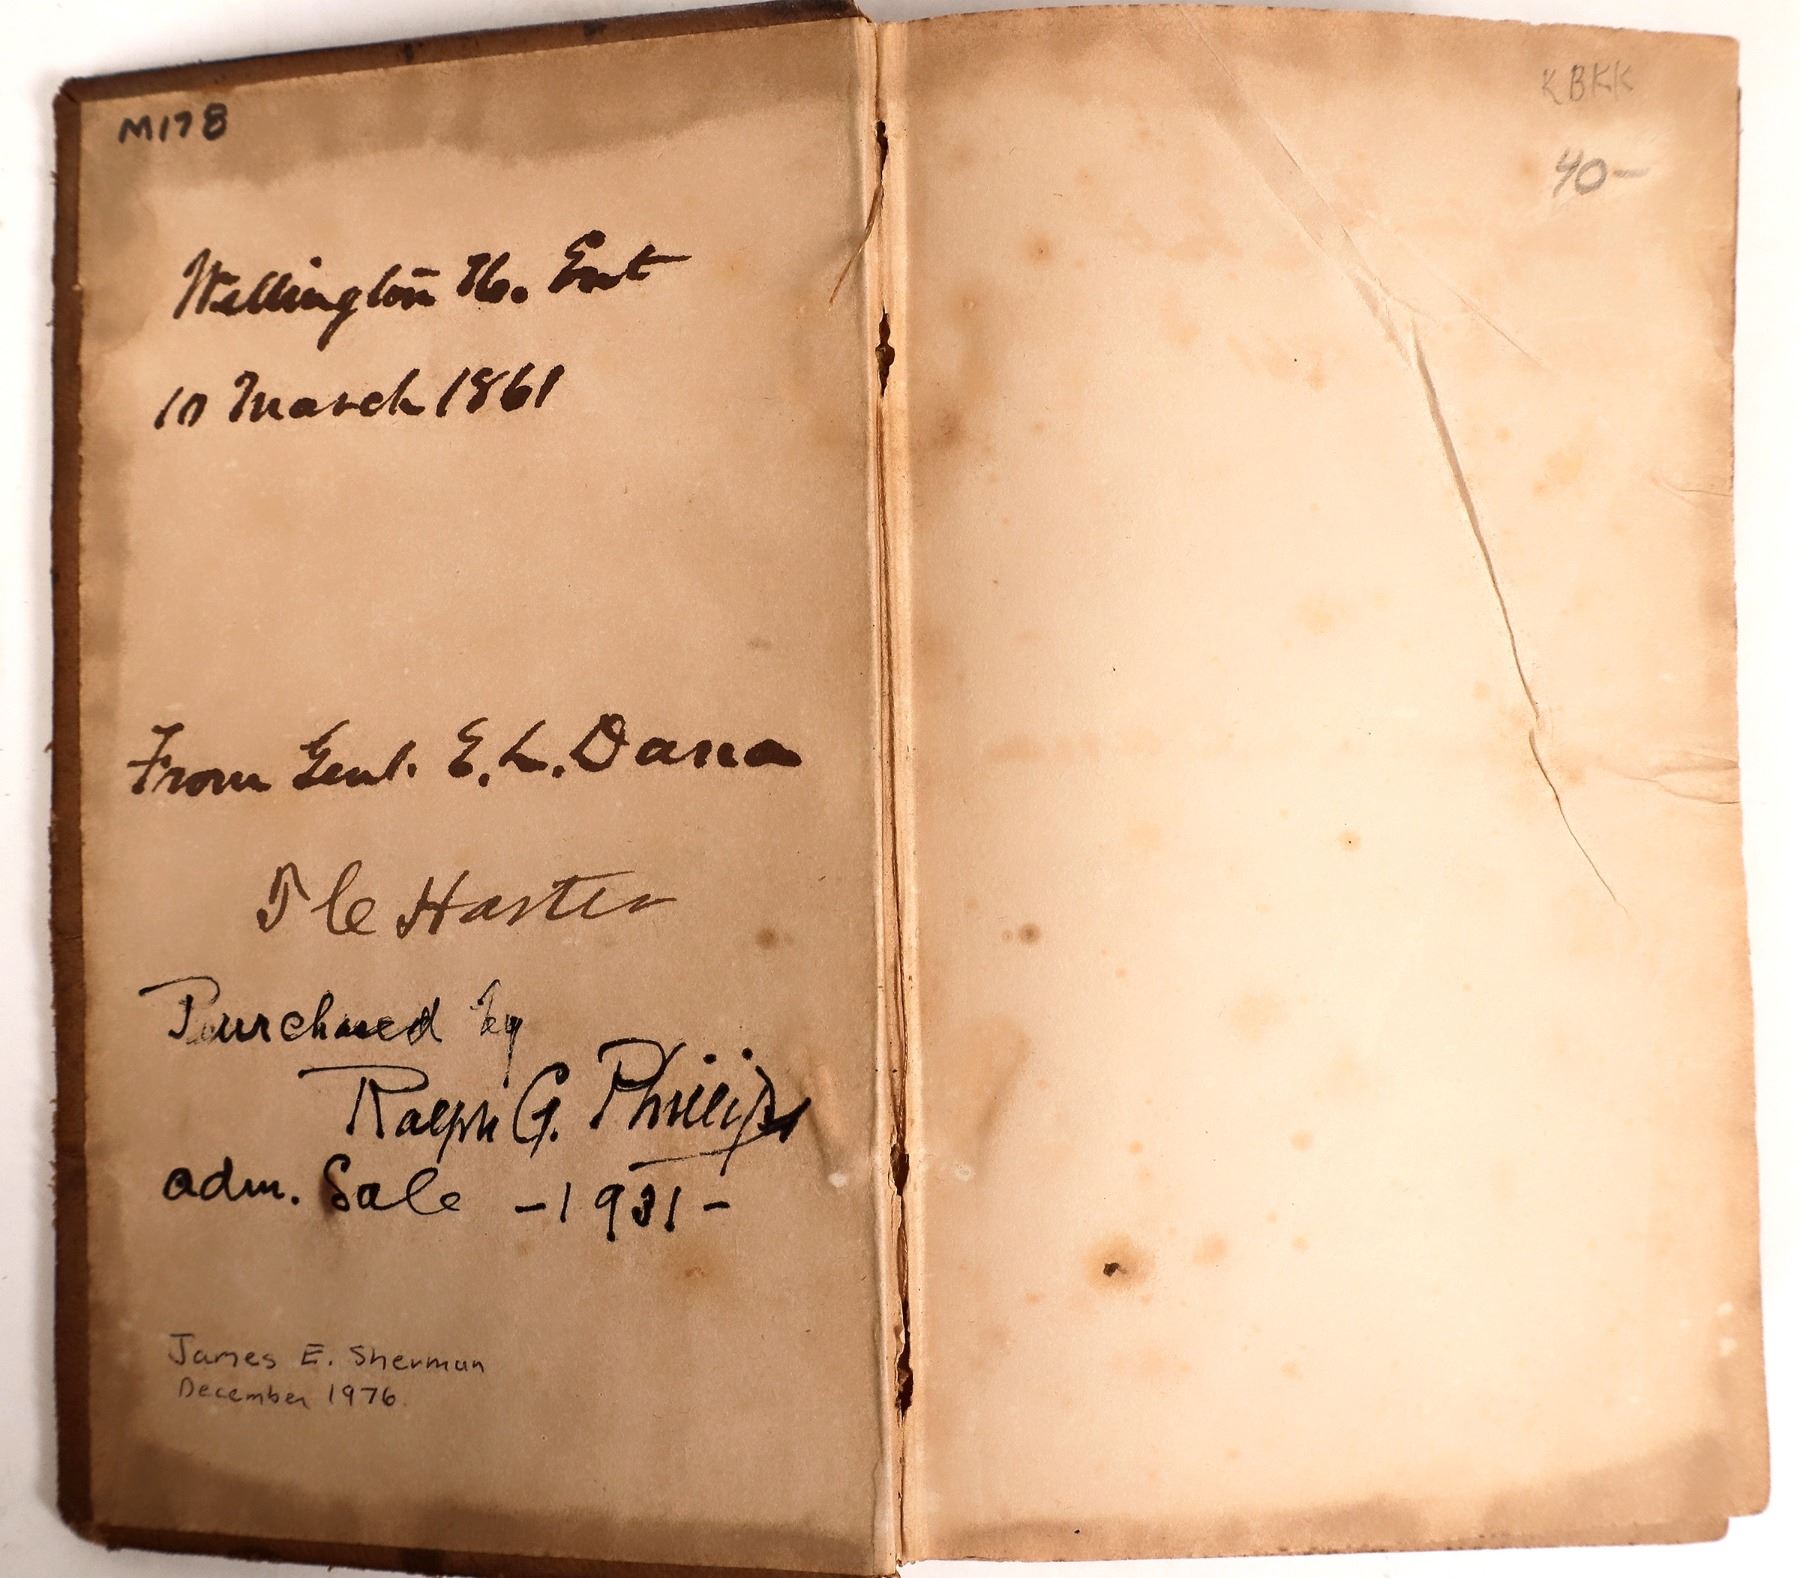 M178
Wellington H. Ent
10 March 1861
From Genl. E. L. Dana
J C Harter
Purchased by
Ralph G. Phillips
adm. Sale -1931-
James E. Sherman
December 1976.
KBKK
40-